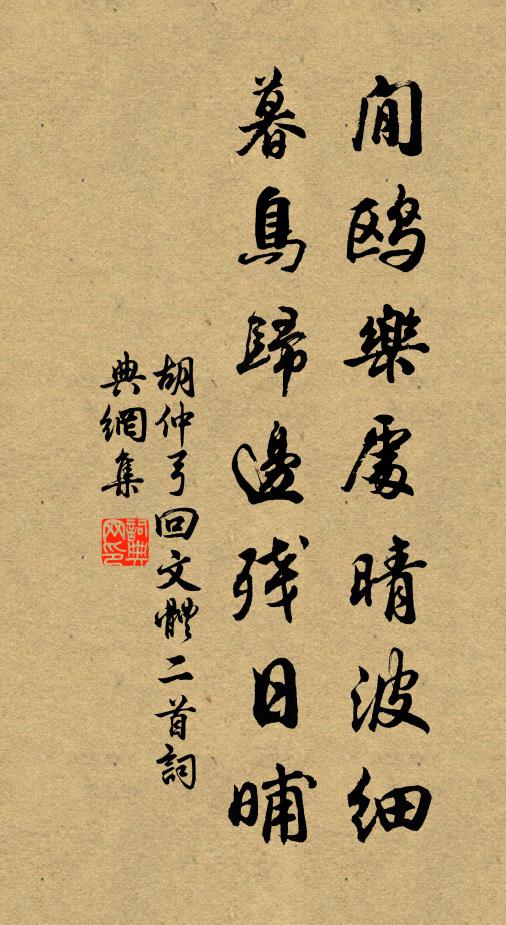 閒鷗樂處晴波細
暮鳥歸邊殘日晡
胡仲弓回文體二首詞
典網集
詞典网印